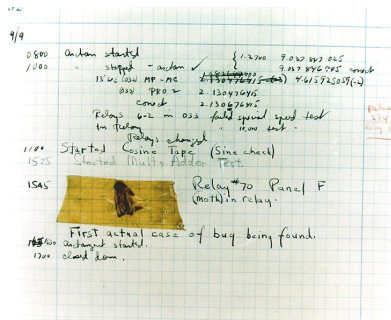 9/9
0800 antan started
1000 " stopped - antan ✓
{ 1.2700 9.037 847 025
9.037 846 995 correct
13" uc (033) MP - MC 4.615925059(-2)
(033) PRO 2 2.130476415
correct 2.130676415
Relays 6-2 in 033 failed special speed test
in Relay " 10,000 test.
Relays changed
1100 Started Cosine Tape (Sine check)
1525 Started Mult+Adder Test.
1545 Relay #70 Panel F
(moth) in relay.
First actual case of bug being found.
antangent started.
1700 closed down.